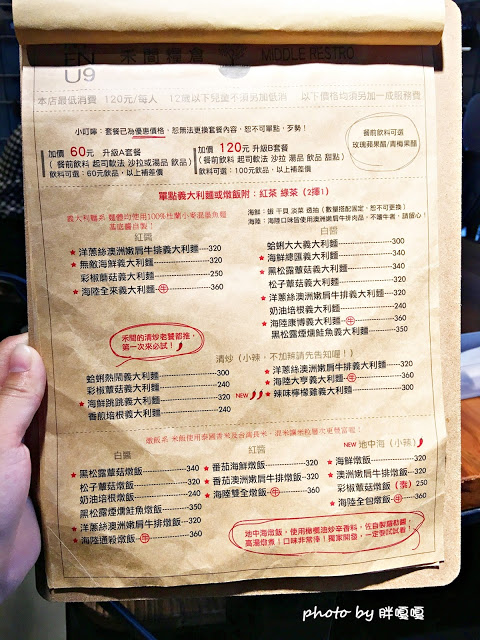 EN
U9
禾間糧倉
MIDDLE RESTRO
本店最低消費 120元/每人 12歲以下兒童不須另加低消 以下價格均須另加一成服務費
小叮嚀：套餐已為優惠價格、恕無法更換套餐內容、恕不可單點，歹勢！
加價 60元 升級A套餐
( 餐前飲料 起司軟法 沙拉或湯品 飲品 )
飲料可選：60元飲品，以上補差價
加價 120元 升級B套餐
( 餐前飲料 起司軟法 沙拉 湯品 飲品 甜點 )
飲料可選：100元飲品，以上補差價
餐前飲料可選
玫瑰蘋果醋/青梅果醋
單點義大利麵或燉飯附：紅茶 綠茶 (2擇1)
義大利麵系
基底醬自製！
海鮮：蝦 干貝 淡菜 透抽 (數量搭配固定、恕不可更換)
海陸：海陸口味皆使用澳洲嫩肩牛排肉品，不諳牛者、請留心！
紅醬
★洋蔥絲澳洲嫩肩牛排義大利麵----320
★無敵海鮮義大利麵----320
彩椒蘑菇義大利麵----250
★海陸全來義大利麵----牛----360
白醬
蛤蜊大大義大利麵----300
★海鮮總匯義大利麵----340
★黑松露蕈菇義大利麵----340
松子蕈菇義大利麵----240
★洋蔥絲澳洲嫩肩牛排義大利麵----320
奶油培根義大利麵----240
★海陸康博義大利麵-牛----360
黑松露煙燻鮭魚義大利麵----350
禾間的清炒老饕都推，
第一次來必試！
清炒 (小辣，不加辣請先告知喔！)
蛤蜊熱鬧義大利麵----300
彩椒蕈菇義大利麵----240
★海鮮跳跳義大利麵----320
香煎培根義大利麵----240
★洋蔥絲澳洲嫩肩牛排義大利麵----320
★海陸大亨義大利麵-牛----360
NEW ★辣味檸檬雞義大利麵----300
白醬
★黑松露蕈菇燉飯----340
松子蕈菇燉飯----240
奶油培根燉飯----240
黑松露煙燻鮭魚燉飯----350
★洋蔥絲澳洲嫩肩牛排燉飯----320
★海陸通殺燉飯-牛----360
紅醬
★番茄海鮮燉飯----320
★番茄澳洲嫩肩牛排燉飯----320
★海陸雙全燉飯-牛----360
NEW 地中海 (小辣)
★海鮮燉飯----320
★澳洲嫩肩牛排燉飯----320
彩椒蕈菇燉飯 (素) 250
★海陸全包燉飯-牛----360
地中海燉飯，使用橄欖油炒辛香料，佐自製羅勒醬，
高湯燉煮！口味非常棒！獨家開發，一定要試試看！
photo by 胖嘎嘎